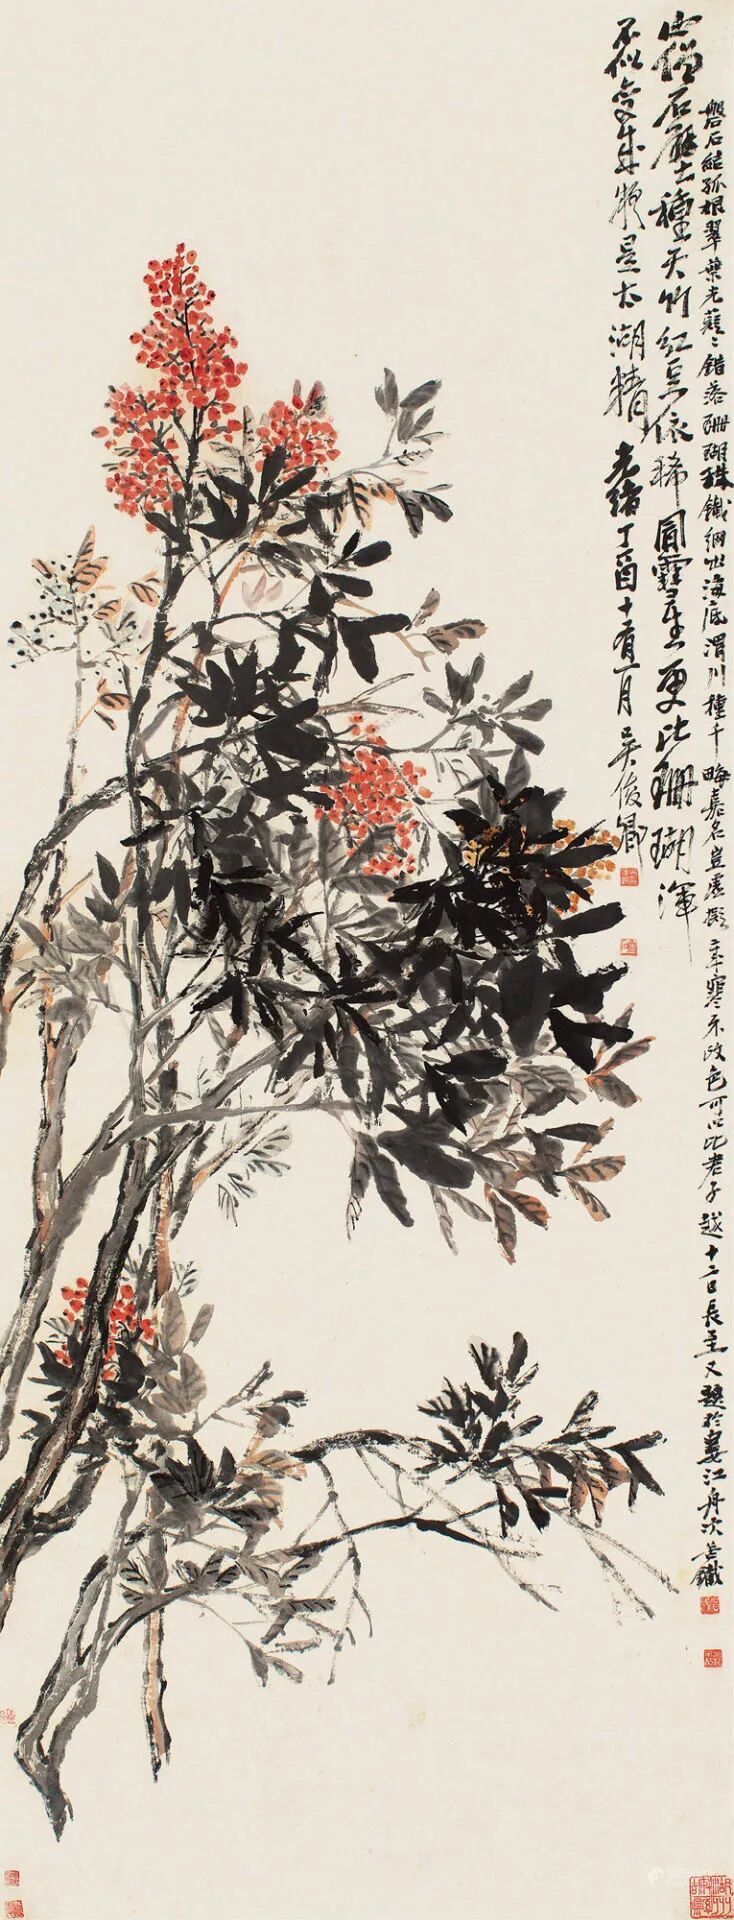 磐石結孤根翠葉光〻錯落珊瑚珠鐵網出海底渭川種千畮嘉名豈虛擬寒不改色可以比君子越十二日長至又題於婁江舟次苦鐵
山僧石壁種天竹紅豆依稀更比珊瑚渾
不似是太湖精光緒丁酉十有一月吳俊卿